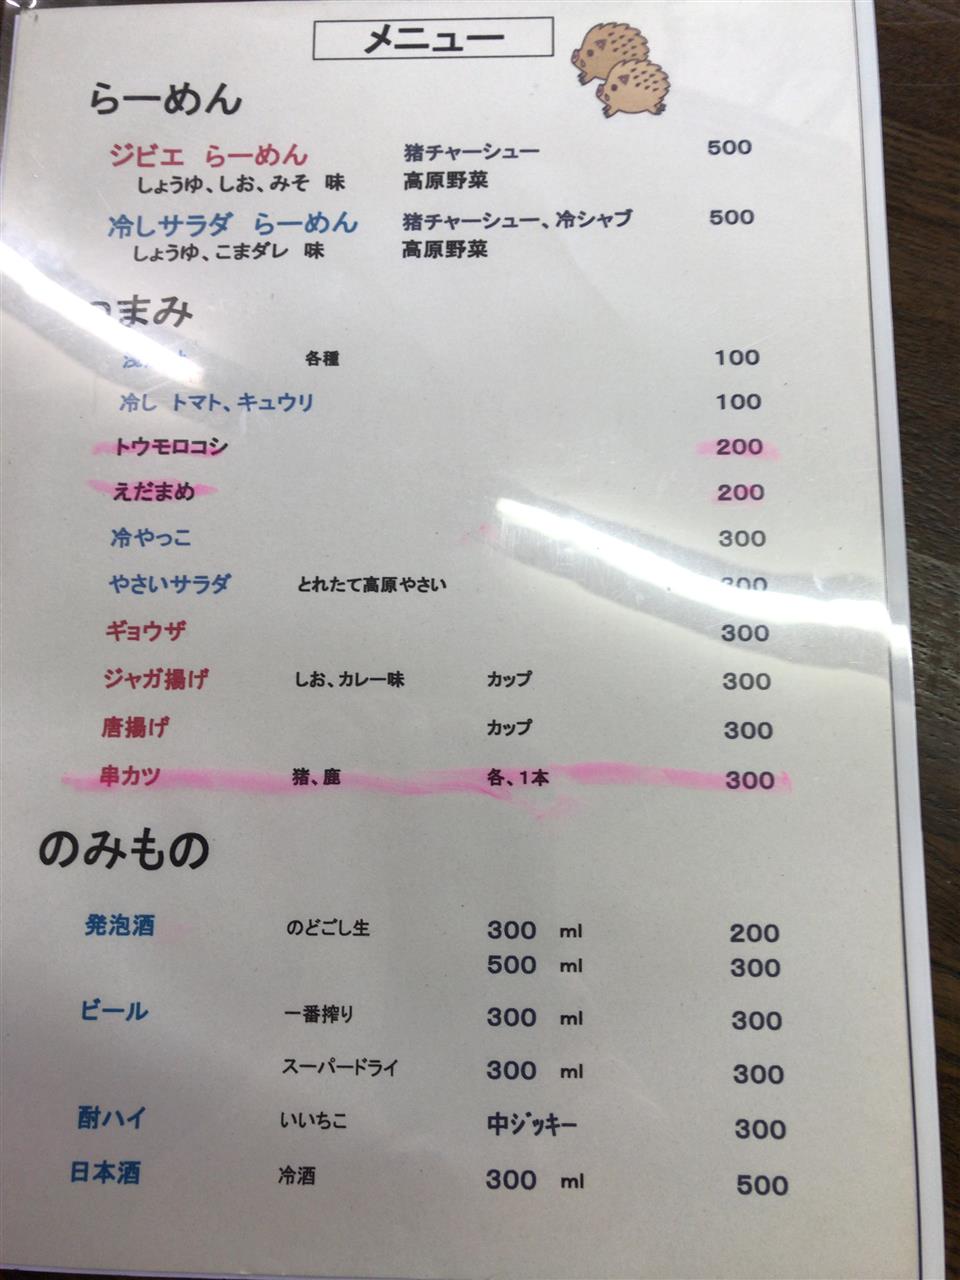 メニュー
らーめん
ジビエ らーめん 猪チャーシュー 500
しょうゆ、しお、みそ 味 高原野菜
冷しサラダ らーめん 猪チャーシュー、冷シャブ 500
しょうゆ、こまダレ 味 高原野菜
まみ
各種 100
冷し トマト、キュウリ 100
トウモロコシ 200
えだまめ 200
冷やっこ 300
やさいサラダ とれたて高原やさい 300
ギョウザ 300
ジャガ揚げ しお、カレー味 カップ 300
唐揚げ カップ 300
串カツ 猪、鹿 各、1本 300
のみもの
発泡酒 のどごし生 300 ml 200
500 ml 300
ビール 一番搾り 300 ml 300
スーパードライ 300 ml 300
酎ハイ いいちこ 中ジッキー 300
日本酒 冷酒 300 ml 500